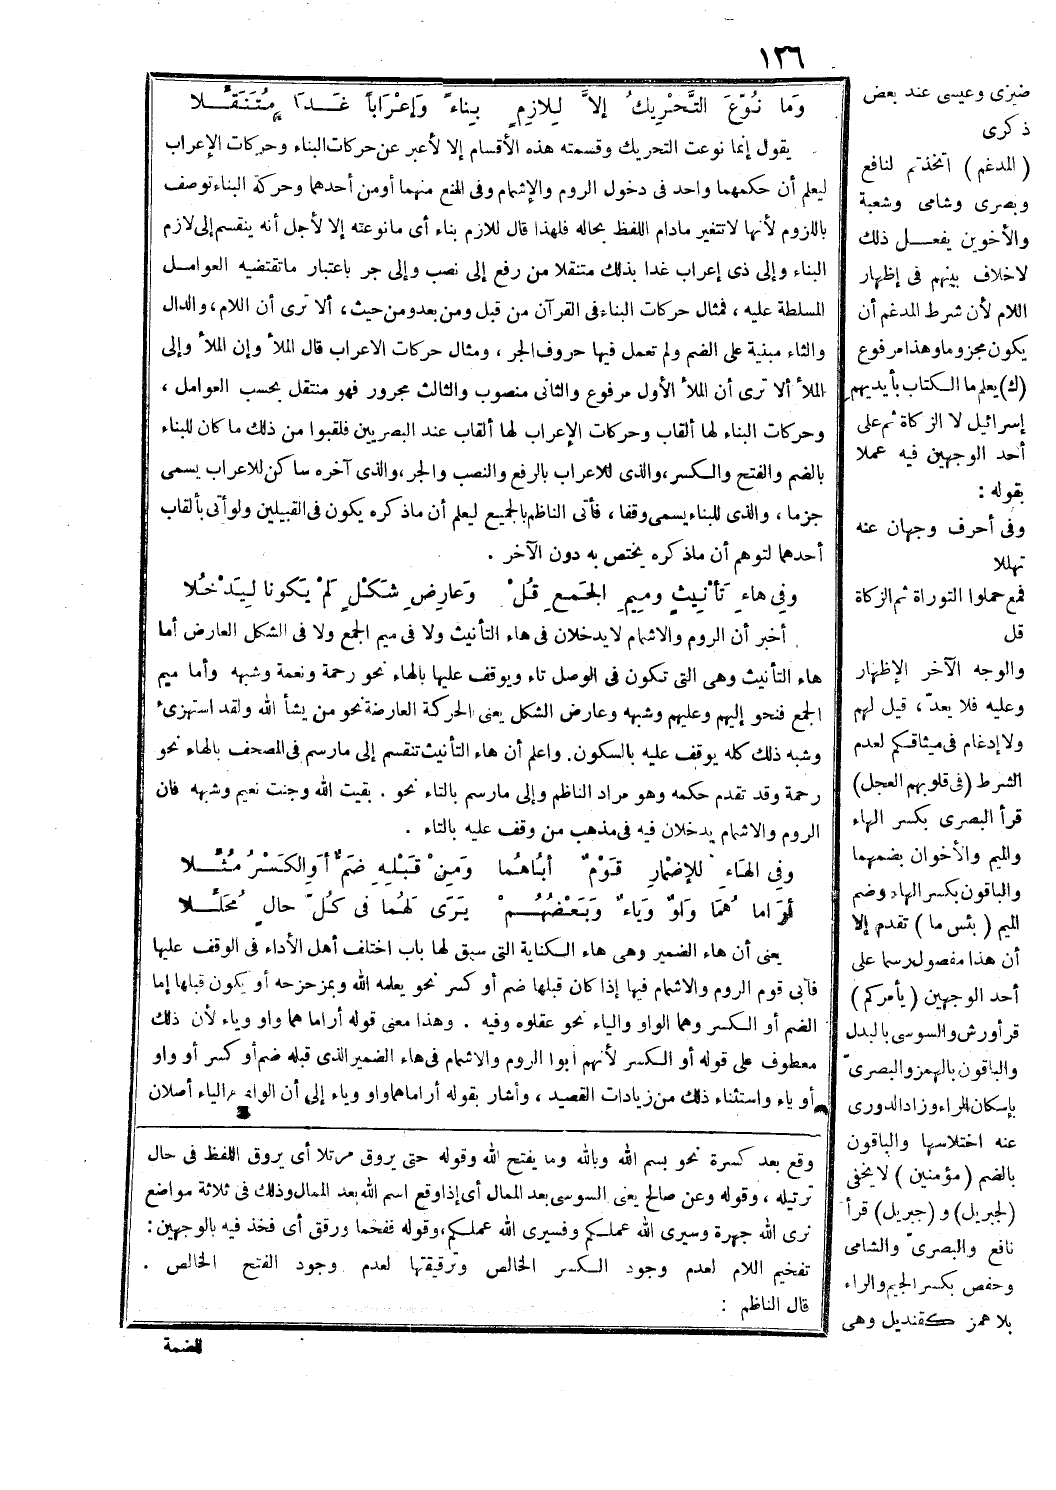 ١٣٦
وَما نُوِّعَ التَّحْرِيكُ إلاَّ لِلازِمٍ بِناءً وَإعْرَاباً غَدَا مُتَنَقِّلا
يقول إنما نوعت التحريك وقسمته هذه الأقسام إلا لأعبر عن حركات البناء وحركات الإعراب
ليعلم أن حكمهما واحد فى دخول الروم والإشمام وفى المنع منهما أو من أحدهما وحركة البناء توصف
باللزوم لأنها لا تتغير مادام اللفظ بحاله فلهذا قال للازم بناء أى مانوعته إلا لأجل أنه ينقسم إلى لازم
البناء وإلى ذى إعراب غدا بذلك متنقلا من رفع إلى نصب وإلى جر باعتبار ماتقتضيه العوامل
المسلطة عليه ، فمثال حركات البناء فى القرآن من قبل ومن بعد ومن حيث، ألا ترى أن اللام، والدال
والثاء مبنية على الضم ولم تعمل فيها حروف الجر ، ومثال حركات الاعراب قال الملأ وإن الملأ وإلى
الملأ ألا ترى أن الملأ الأول مرفوع والثانى منصوب والثالث مجرور فهو منتقل بحسب العوامل ،
وحركات البناء لها ألقاب وحركات الإعراب لها ألقاب عند البصريين فلقبوا من ذلك ما كان للبناء
بالضم والفتح والكسر، والذى للاعراب بالرفع والنصب والجر، والذى آخره ساكن للاعراب يسمى
جزما ، والذى للبناء يسمى وقفا ، فأتى الناظم بالجميع ليعلم أن ماذكره يكون فى القبيلين ولو أتى بألقاب
أحدهما لتوهم أن ماذكره يختص به دون الآخر .
وفِى هاءِ تَأْنِيثٍ ومِيمِ الجَمعِ قُلْ وَعارِضِ شَكْلٍ لَمْ يَكُونا لِيَدْخُلا
أخبر أن الروم والاشمام لايدخلان فى هاء التأنيث ولا فى ميم الجمع ولا فى الشكل العارض أما
هاء التأنيث وهى التى تكون فى الوصل تاء ويوقف عليها بالهاء نحو رحمة ونعمة وشبهه وأما ميم
الجمع فنحو إليهم وعليهم وشبهه وعارض الشكل يعنى الحركة العارضة نحو من يشأ الله ولقد استهزئ
وشبه ذلك كله يوقف عليه بالسكون. واعلم أن هاء التأنيث تنقسم إلى مارسم فى المصحف بالهاء نحو
رحمة وقد تقدم حكمه وهو مراد الناظم وإلى مارسم بالتاء نحو . بقيت الله وجنت نعيم وشبهه فان
الروم والاشمام يدخلان فيه فى مذهب من وقف عليه بالتاء .
وفِى الهَاءِ للإضْمارِ قَوْمٌ أبَاهُما وَمِنْ قَبْلِهِ ضَمٌّ أوِ الكَسْرُ مُثِّلا
أوَ اما هُما وَاوٌ وَياءٌ وَبَعْضُهُمْ يَرَى لَهُما فى كُلّ حالٍ مُحَلِّلا
يعنى أن هاء الضمير وهى هاء الكناية التى سبق لها باب اختلف أهل الأداء فى الوقف عليها
فأبى قوم الروم والاشمام فيها إذا كان قبلها ضم أو كسر نحو يعلمه الله وبمزحزحه أو يكون قبلها إما
الضم أو الكسر وهما الواو والياء نحو عقلوه وفيه . وهذا معنى قوله أراما هما واو وياء لأن ذلك
معطوف على قوله أو الكسر لأنهم ابوا الروم والاشمام فى هاء الضمير الذى قبله ضم أو كسر أو واو
أو ياء واستثناء ذلك من زيادات القصيد ، وأشار بقوله أراما هما واو وياء إلى أن الواو والياء أصلان
وقع بعد كسرة نحو بسم الله وبالله وما يفتح الله وقوله حتى يروق مرتلا أى يروق اللفظ فى حال
ترتيله ، وقوله وعن صالح يعنى السوسى بعد الممال أى إذا وقع اسم الله بعد الممال وذلك فى ثلاثة مواضع
نرى الله جهرة وسيرى الله عملكم وفسيرى الله عملكم، وقوله ففخما ورقق أى فخذ فيه بالوجهين :
تفخيم اللام لعدم وجود الكسر الخالص وترقيقها لعدم وجود الفتح الخالص .
قال الناظم :
للضمة
ضيزى وعيسى عند بعض
ذكرى
(المدغم) اتخذتم لنافع
وبصرى وشامى وشعبة
والأخوين يفعل ذلك
لاخلاف بينهم فى إظهار
اللام لأن شرط المدغم أن
يكون مجزوما وهذا مرفوع
(ك) يعلم ما الكتاب بأيديهم
إسرائيل لا الزكاة ثم على
أحد الوجهين فيه عملا
بقوله :
وفى أحرف وجهان عنه
تهللا
فمع حملوا التوراة ثم الزكاة
قل
والوجه الآخر الإظهار
وعليه فلا يعدّ، قيل لهم
ولا إدغام فى ميثاقكم لعدم
الشرط (فى قلوبهم العجل)
قرأ البصرى بكسر الهاء
والميم والأخوان بضمهما
والباقون بكسر الهاء وضم
الميم (بئس ما) تقدم إلا
أن هذا مفصول رسما على
أحد الوجهين (يأمركم)
قرأ ورش والسوسى بالبدل
والباقون بالهمز والبصرىّ
بإسكان الراء وزاد الدورى
عنه اختلاسها والباقون
بالضم (مؤمنين) لا يخفى
(لجبريل) و (جبريل) قرأ
نافع والبصرىّ والشامى
وحفص بكسر الجيم والراء
بلا همز كقنديل وهى